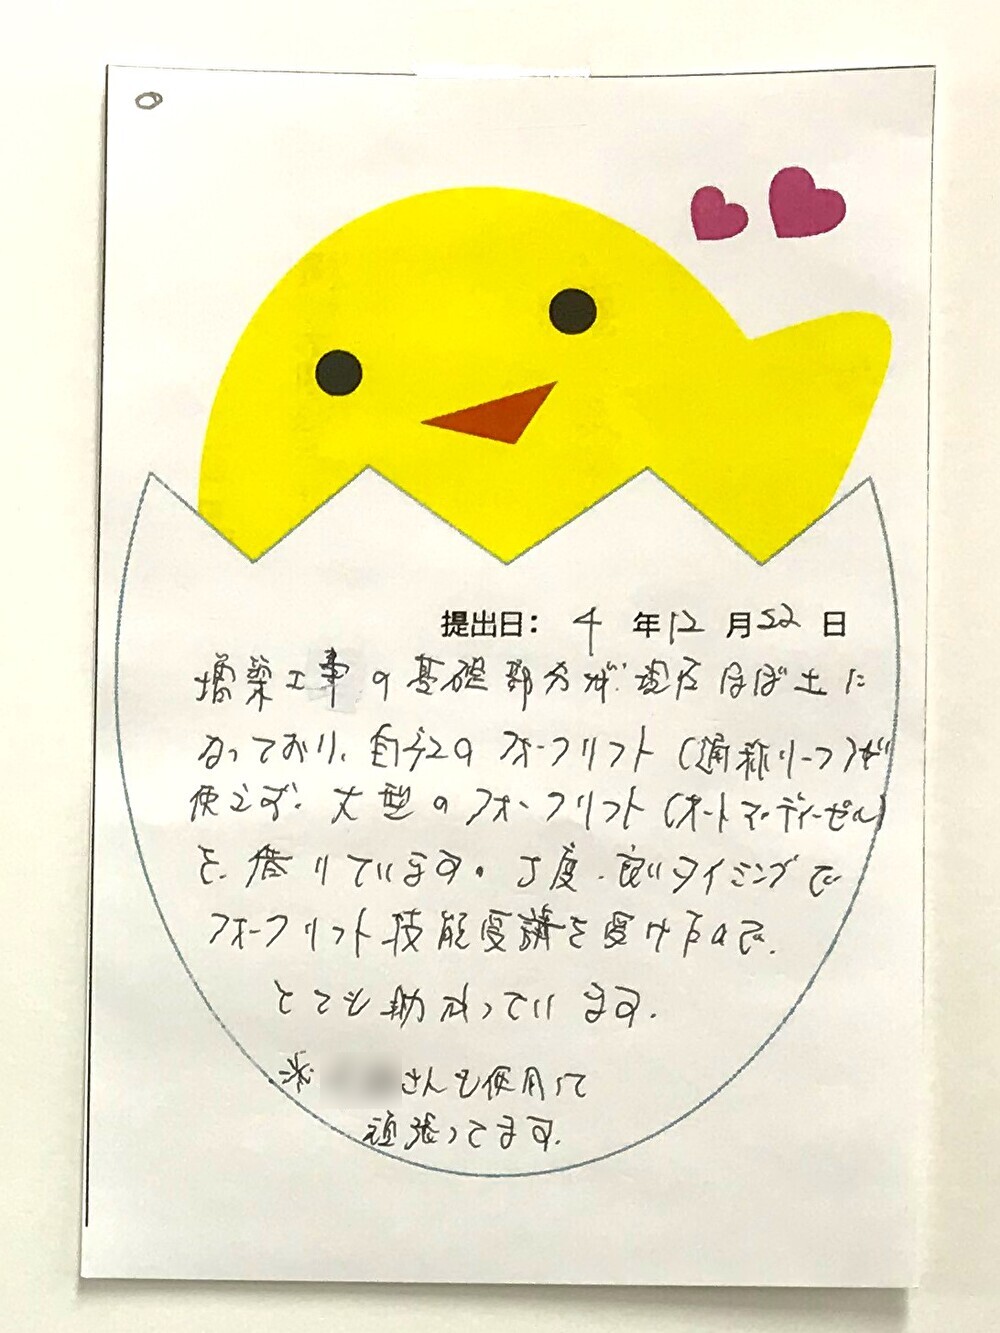 提出日: 4 年 12 月 22 日
増築工事の基礎部分が現在ほぼ土に
なっており、自分の フォークリフト (通称リーフ)が
使えず、大型のフォークリフト (オートマ・ディーゼル)
を、借りています。丁度、良いタイミングで
フォークリフト技能受講を受けたので、
とても助かっています。
※ さんも使用して
頑張ってます。